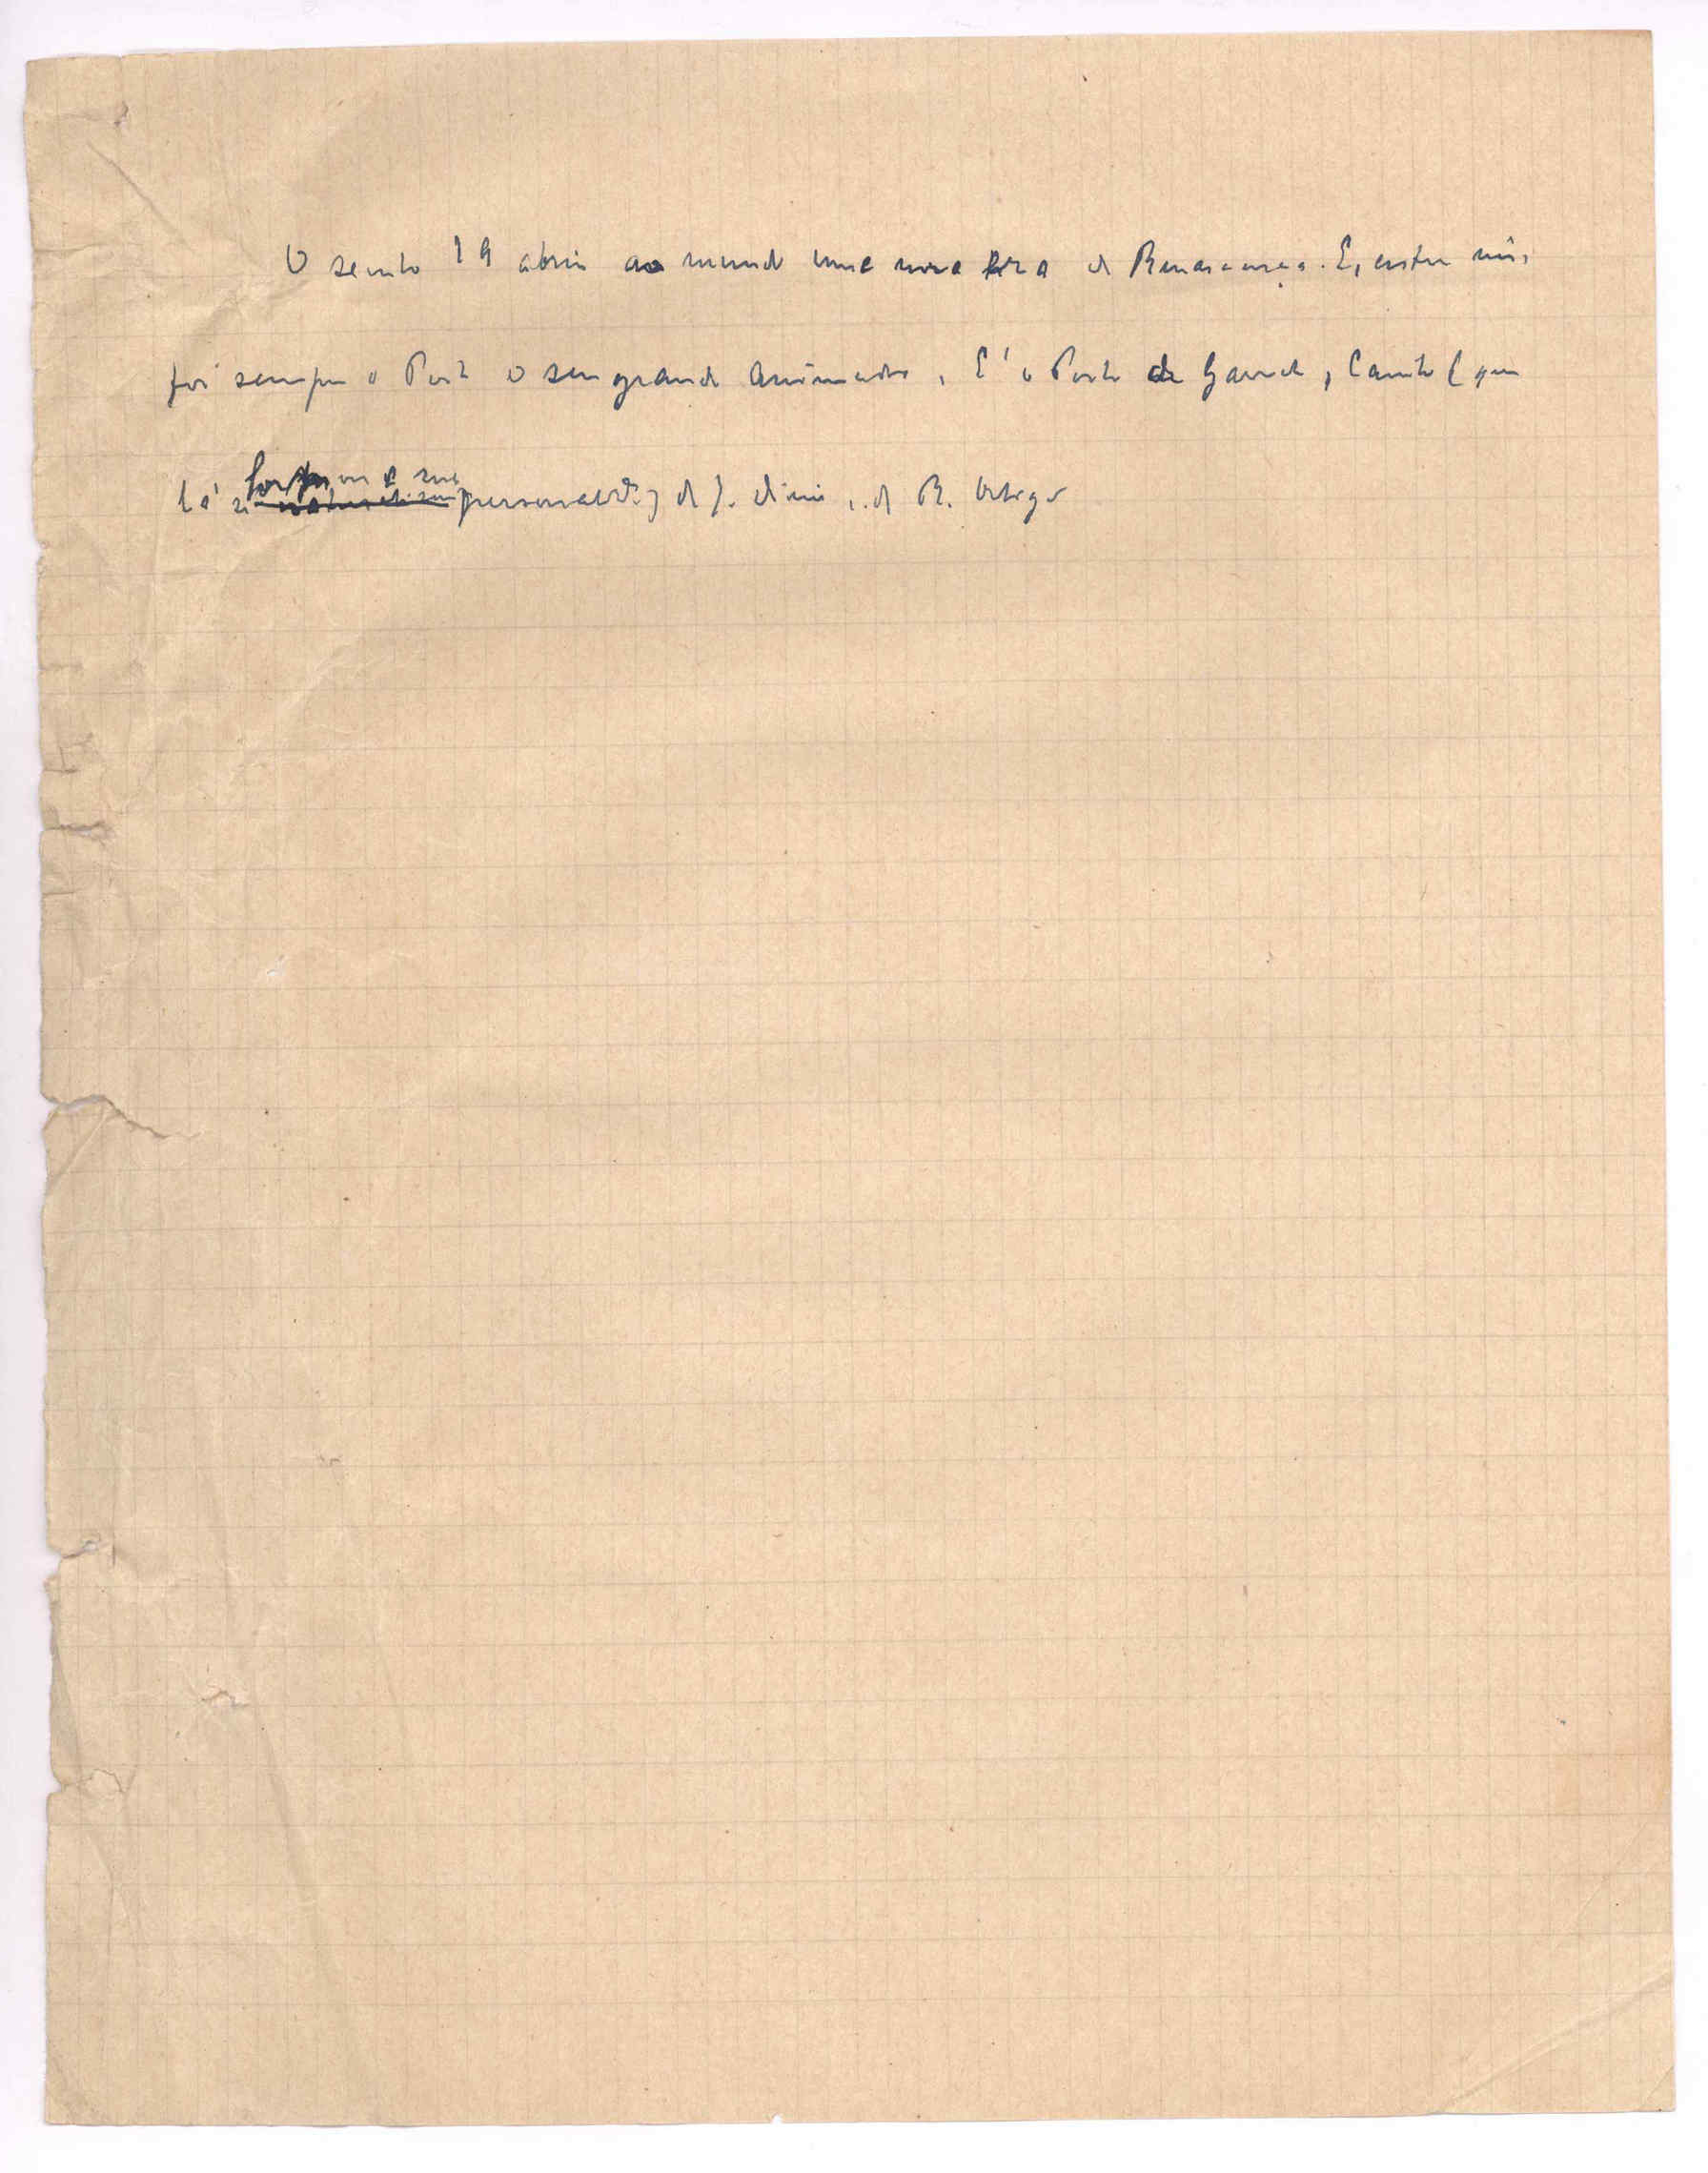 O seculo 19 abriu ao mundo uma nova era de Renascença. E, entre nós,
foi sempre o Porto o seu grande animador. E' o Porto de Garrett, Camilo (que
formou a sua
lá se personalid.) de J. Dinis, de R. Ortigão